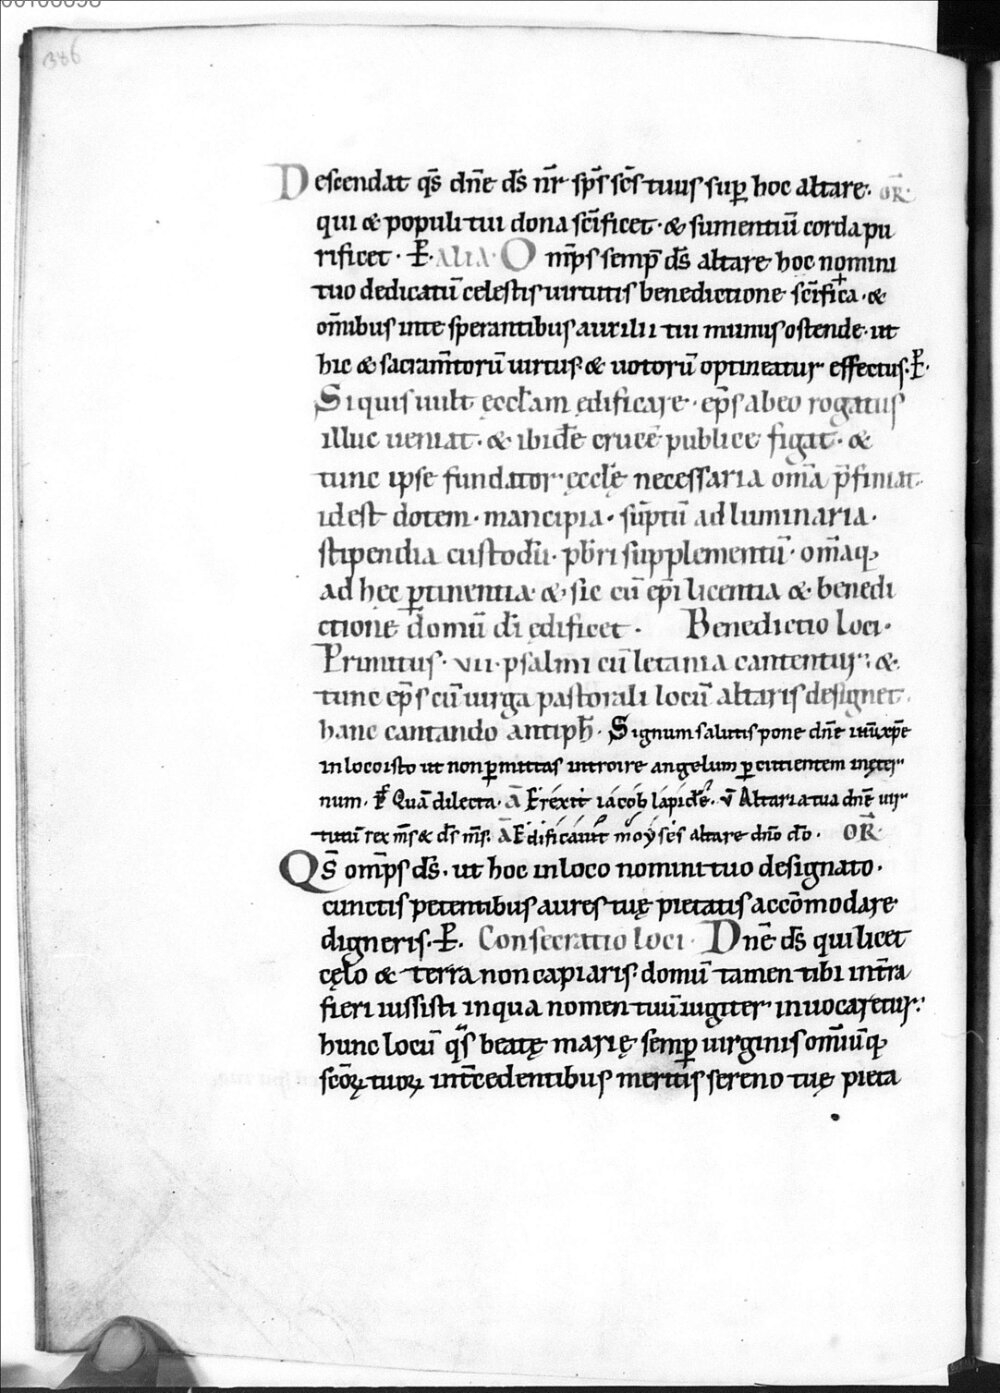 386
Descendat qs̄ dn̄e ds̄ nr̄ sp̄s sc̄s tuus suꝑ hoc altare. OR̄.
qui & populi tui dona sc̄ificet · & sumentiū corda pu
rificet · P̄. ALIA · Om̄ps semp̄ ds̄ altare hoc nomini
tuo dedicatū celestis uirtutis benedictione sc̄ifi+ca · &
om̄ibus in te sperantibus auxilii tui munus ostende · ut
hic & sacram̄torū uirtus & uotorū optineatur effectus. P̄.
Si quis uult ęccl̄am ędificare · ep̄s ab eo rogatus
illuc ueniat · & ibidē crucē publice figat · &
tunc ipse fundator ęccl̄ę necessaria om̄a p̄finiat.
id est dotem · mancipia · sūptū ad luminaria ·
stipendia custodū · pb̄ri supplementū · om̄aq;
ad hęc ꝑtinentia · & sic cū ep̄i licentia & benedi
ctione domū dī ędificet · Benedictio loci ·
Primitus · vii · psalmi cū letania cantentur; &
tunc ep̄s cū uirga pastorali locū altaris designet.
hanc cantando antiph̄ · Signum salutis pone dn̄e iħu xp̄e
in loco isto ut non ꝑmittas introire angelum ꝑcutientem inęter
num · P̄s Quā dilecta · Ā Erexit iacob lapidē · V̄ Altaria tua dn̄e uir
tutū rex m̄s & ds̄ m̄s. Ā Edificauit moyses altare dn̄o dō · OR̄
Qs̄ om̄ps ds̄ · ut hoc in loco nomini tuo designato ·
cunctis petentibus aures tuę pietatis accōmodare
digneris. P̄. Consecratio loci · Dn̄e ds̄ qui licet
cęlo & terra non capiaris domū tamen tibi in tr̄a
fieri iussisti in qua nomen tuū iugiter inuocaretur;
hunc locū qs̄ beatę marię semꝑ uirginis om̄iūq;
sc̄oꝝ tuoꝝ int̄cedentibus meritis sereno tuę pieta